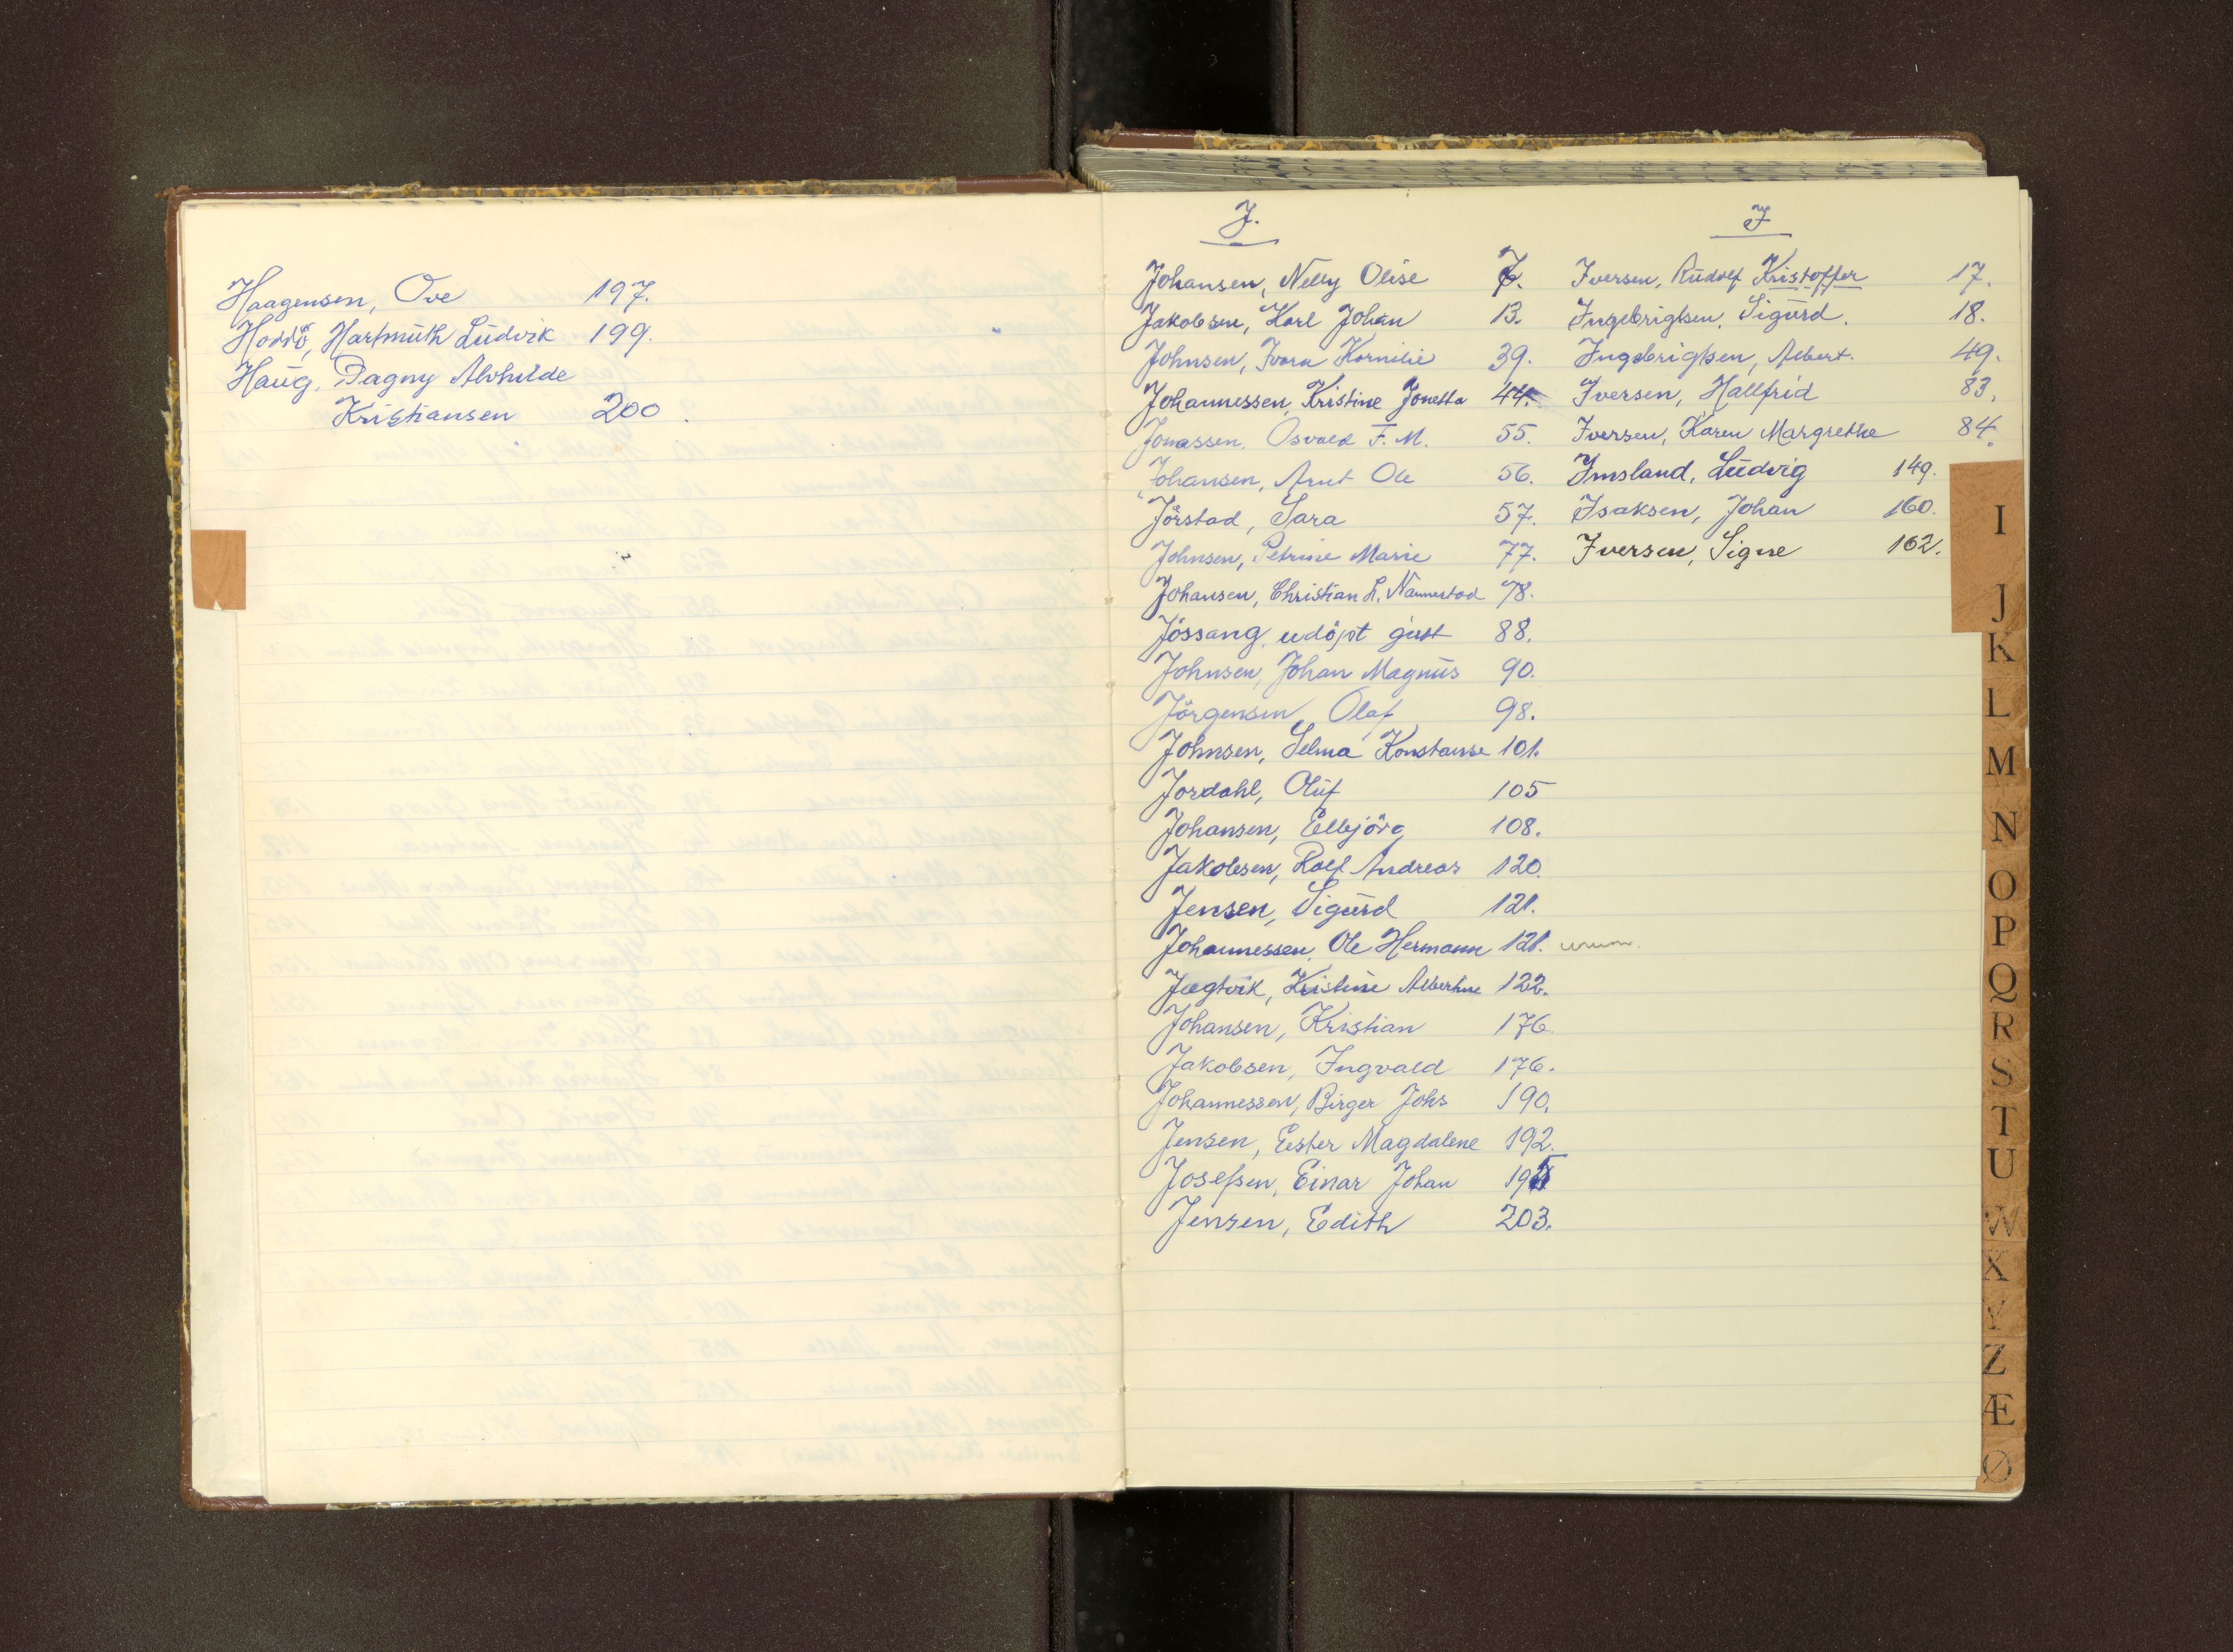 Haagensen, Ove 197.
Hoddö, Hartmuth Ludvik 199.
Haug, Dagny Alvhilde
Kristiansen 200.
J.
Johansen, Nelly Olise 7.
Jakobsen, Karl Johan 13.
Johnsen, Ivara Kornilie 39.
Johannessen, Kristine Jonetta 44.
Jonassen, Osvald F. M. 55.
Johansen, Arnt Ole 56.
Jörstad, Sara 57.
Johnsen, Petrine Marie 77.
Johansen, Christian L. Nannestad 78.
Jössang, udöpt gutt 88.
Johnsen, Johan Magnus 90.
Jörgensen, Olaf 98.
Johnsen, Selma Konstanse 101.
Jordahl, Oluf 105
Johansen, Ellbjörg 108.
Jakobsen, Rolf Andreas 120.
Jensen, Sigurd 121.
Johannessen, Ole Hermann 121.
Jægtvik, Kristine Albertine 122.
Johansen, Kristian 176.
Jakobsen, Ingvald 176.
Johannessen, Birger Johs 190.
Jensen, Ester Magdalene 192.
Josefsen, Einar Johan
Jensen, Edith 203.
I
Iversen, Rudolf Kristoffer 17.
Ingebrigtsen, Sigurd. 18.
Ingebrigtsen, Albert. 49.
Iversen, Hallfrid 83.
Iversen, Karen Margrethe 84.
Imsland, Ludvig 149.
Isaksen, Johan 160.
Iversen, Signe 162.
I
J
K
L
M
N
O
P
Q
R
S
T
U
W
X
Y
Z
Æ
Ø